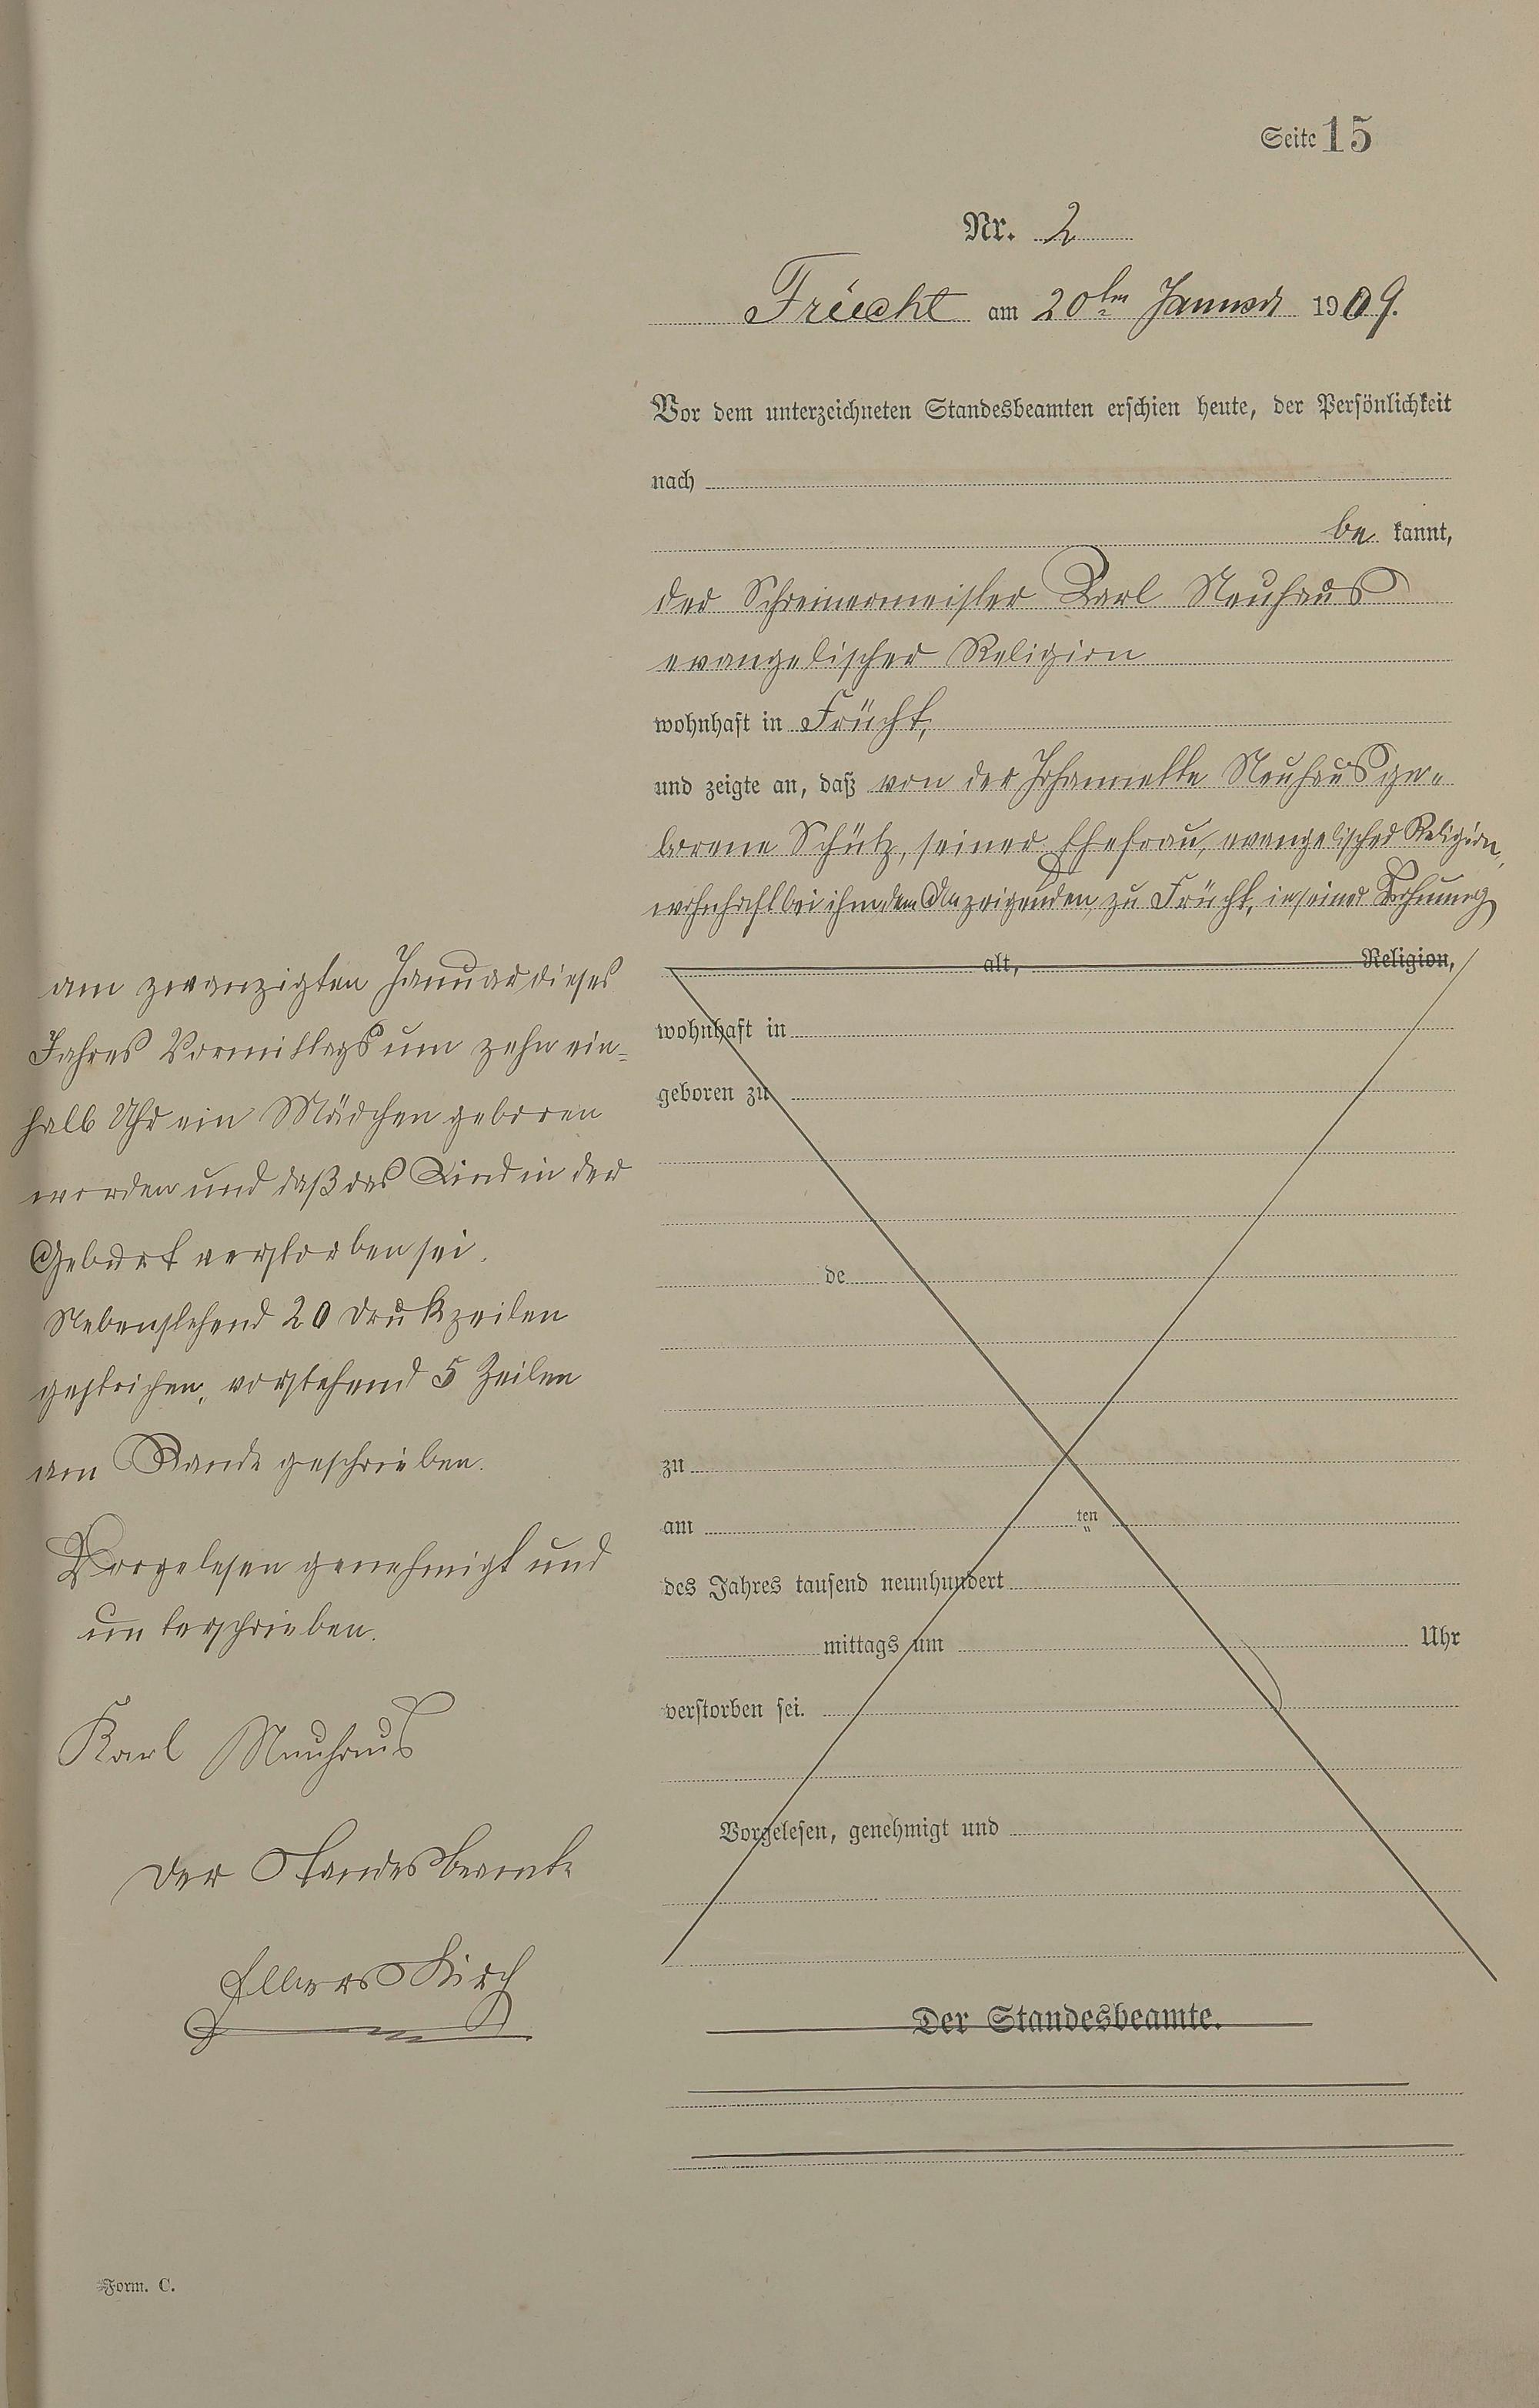 Seite 15
Nr. 2
Früecht am 20ten Januar 1909.
Vor dem unterzeichneten Standesbeamten erschien heute, der Persönlichkeit
nach
be kannt,
der Schreinermeister Karl Neuhaus
evangelischer Religion
wohnhaft in Frücht,
und zeigte an, daß von der Johannette Neuhaus ge-
borene Schütz, seiner Ehefrau, evangelischer Religion,
wohnhaft bei ihm dem Anzeigenden, zu Frücht, in seiner Wohnung
alt, Religion,
wohnhaft in
geboren zu
de
zu
am ten
des Jahres tausend neunhundert
mittags um Uhr
verstorben sei.
Vorgelesen, genehmigt und
Der Standesbeamte.
am zwanzigten Januar dieses
Jahres Vormittags um zehn ein-
halb Uhr ein Mädchen geboren
worden und daß das Kind in der
Geburt verstorben sei.
Nebenstehend 20 Drukzeilen
gestrichen, vorstehend 5 Zeilen
am Rande geschrieben.
Vorgelesen genehmigt und
unterschrieben.
Karl Neuhaus
Der Standesbeamte
Form. C.